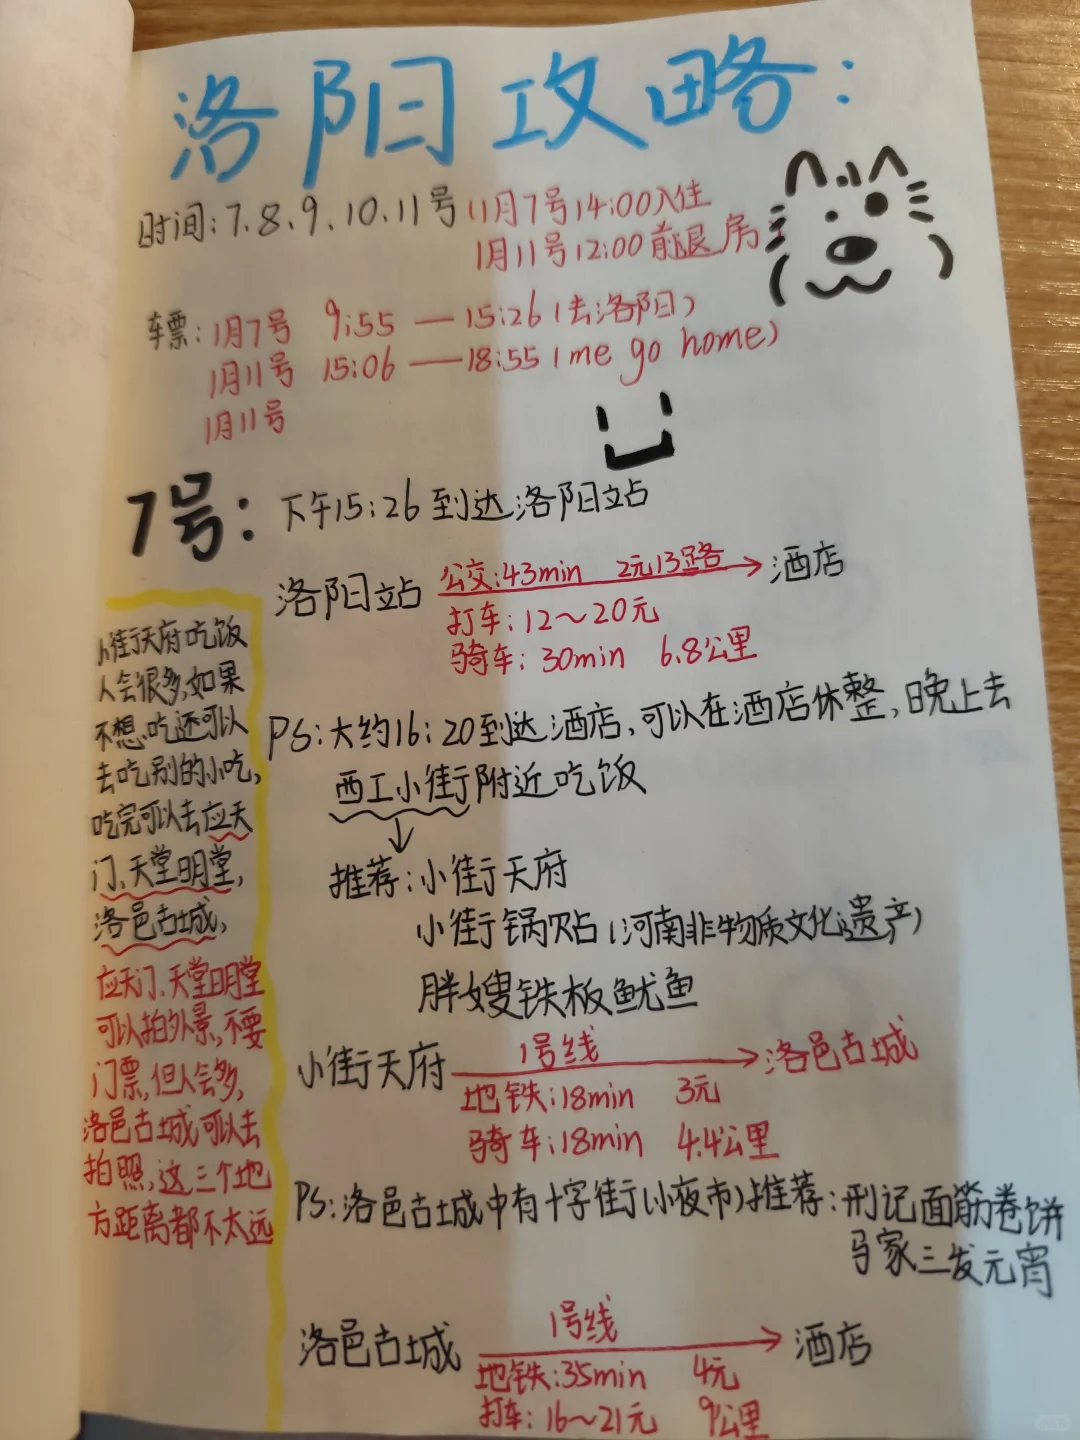 洛阳攻略:
时间:7、8、9、10、11号(1月7号14:00入住
1月11号12:00前退房)
车票:1月7号 9:55 — 15:26(去洛阳)
1月11号 15:06 — 18:55(me go home)
1月11号
7号:下午15:26到达洛阳站
洛阳站 公交:43min 2元13路 → 酒店
打车:12~20元
骑车:30min 6.8公里
PS:大约16:20到达酒店,可以在酒店休整,晚上去
西工小街附近吃饭
↓
推荐:小街天府
小街锅贴(河南非物质文化遗产)
胖嫂铁板鱿鱼
小街天府 1号线 → 洛邑古城
地铁:18min 3元
骑车:18min 4.4公里
PS:洛邑古城中有十字街(小夜市)推荐:刑记面筋卷饼
马家三发元宵
洛邑古城 1号线 → 酒店
地铁:35min 4元
打车:16~21元 9公里
小街天府吃饭
人会很多,如果
不想吃还可以
去吃别的小吃,
吃完可以去应天
门、天堂明堂,
洛邑古城,
应天门、天堂明堂
可以拍外景,不要
门票,但人会多,
洛邑古城可以去
拍照,这三个地
方距离都不太远